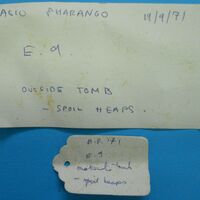 AGIO PHARANGO 19/9/71
E.9.
OUTSIDE TOMB
- SPOIL HEAPS.
A.P. '71
E.9
outside tomb
- spoil heaps